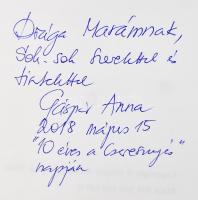 Drága Marámnak,
Sok-sok szeretettel és
tisztelettel
Gáspár Anna
2018 május 15
"10 éves a Cseresnyés"
napján